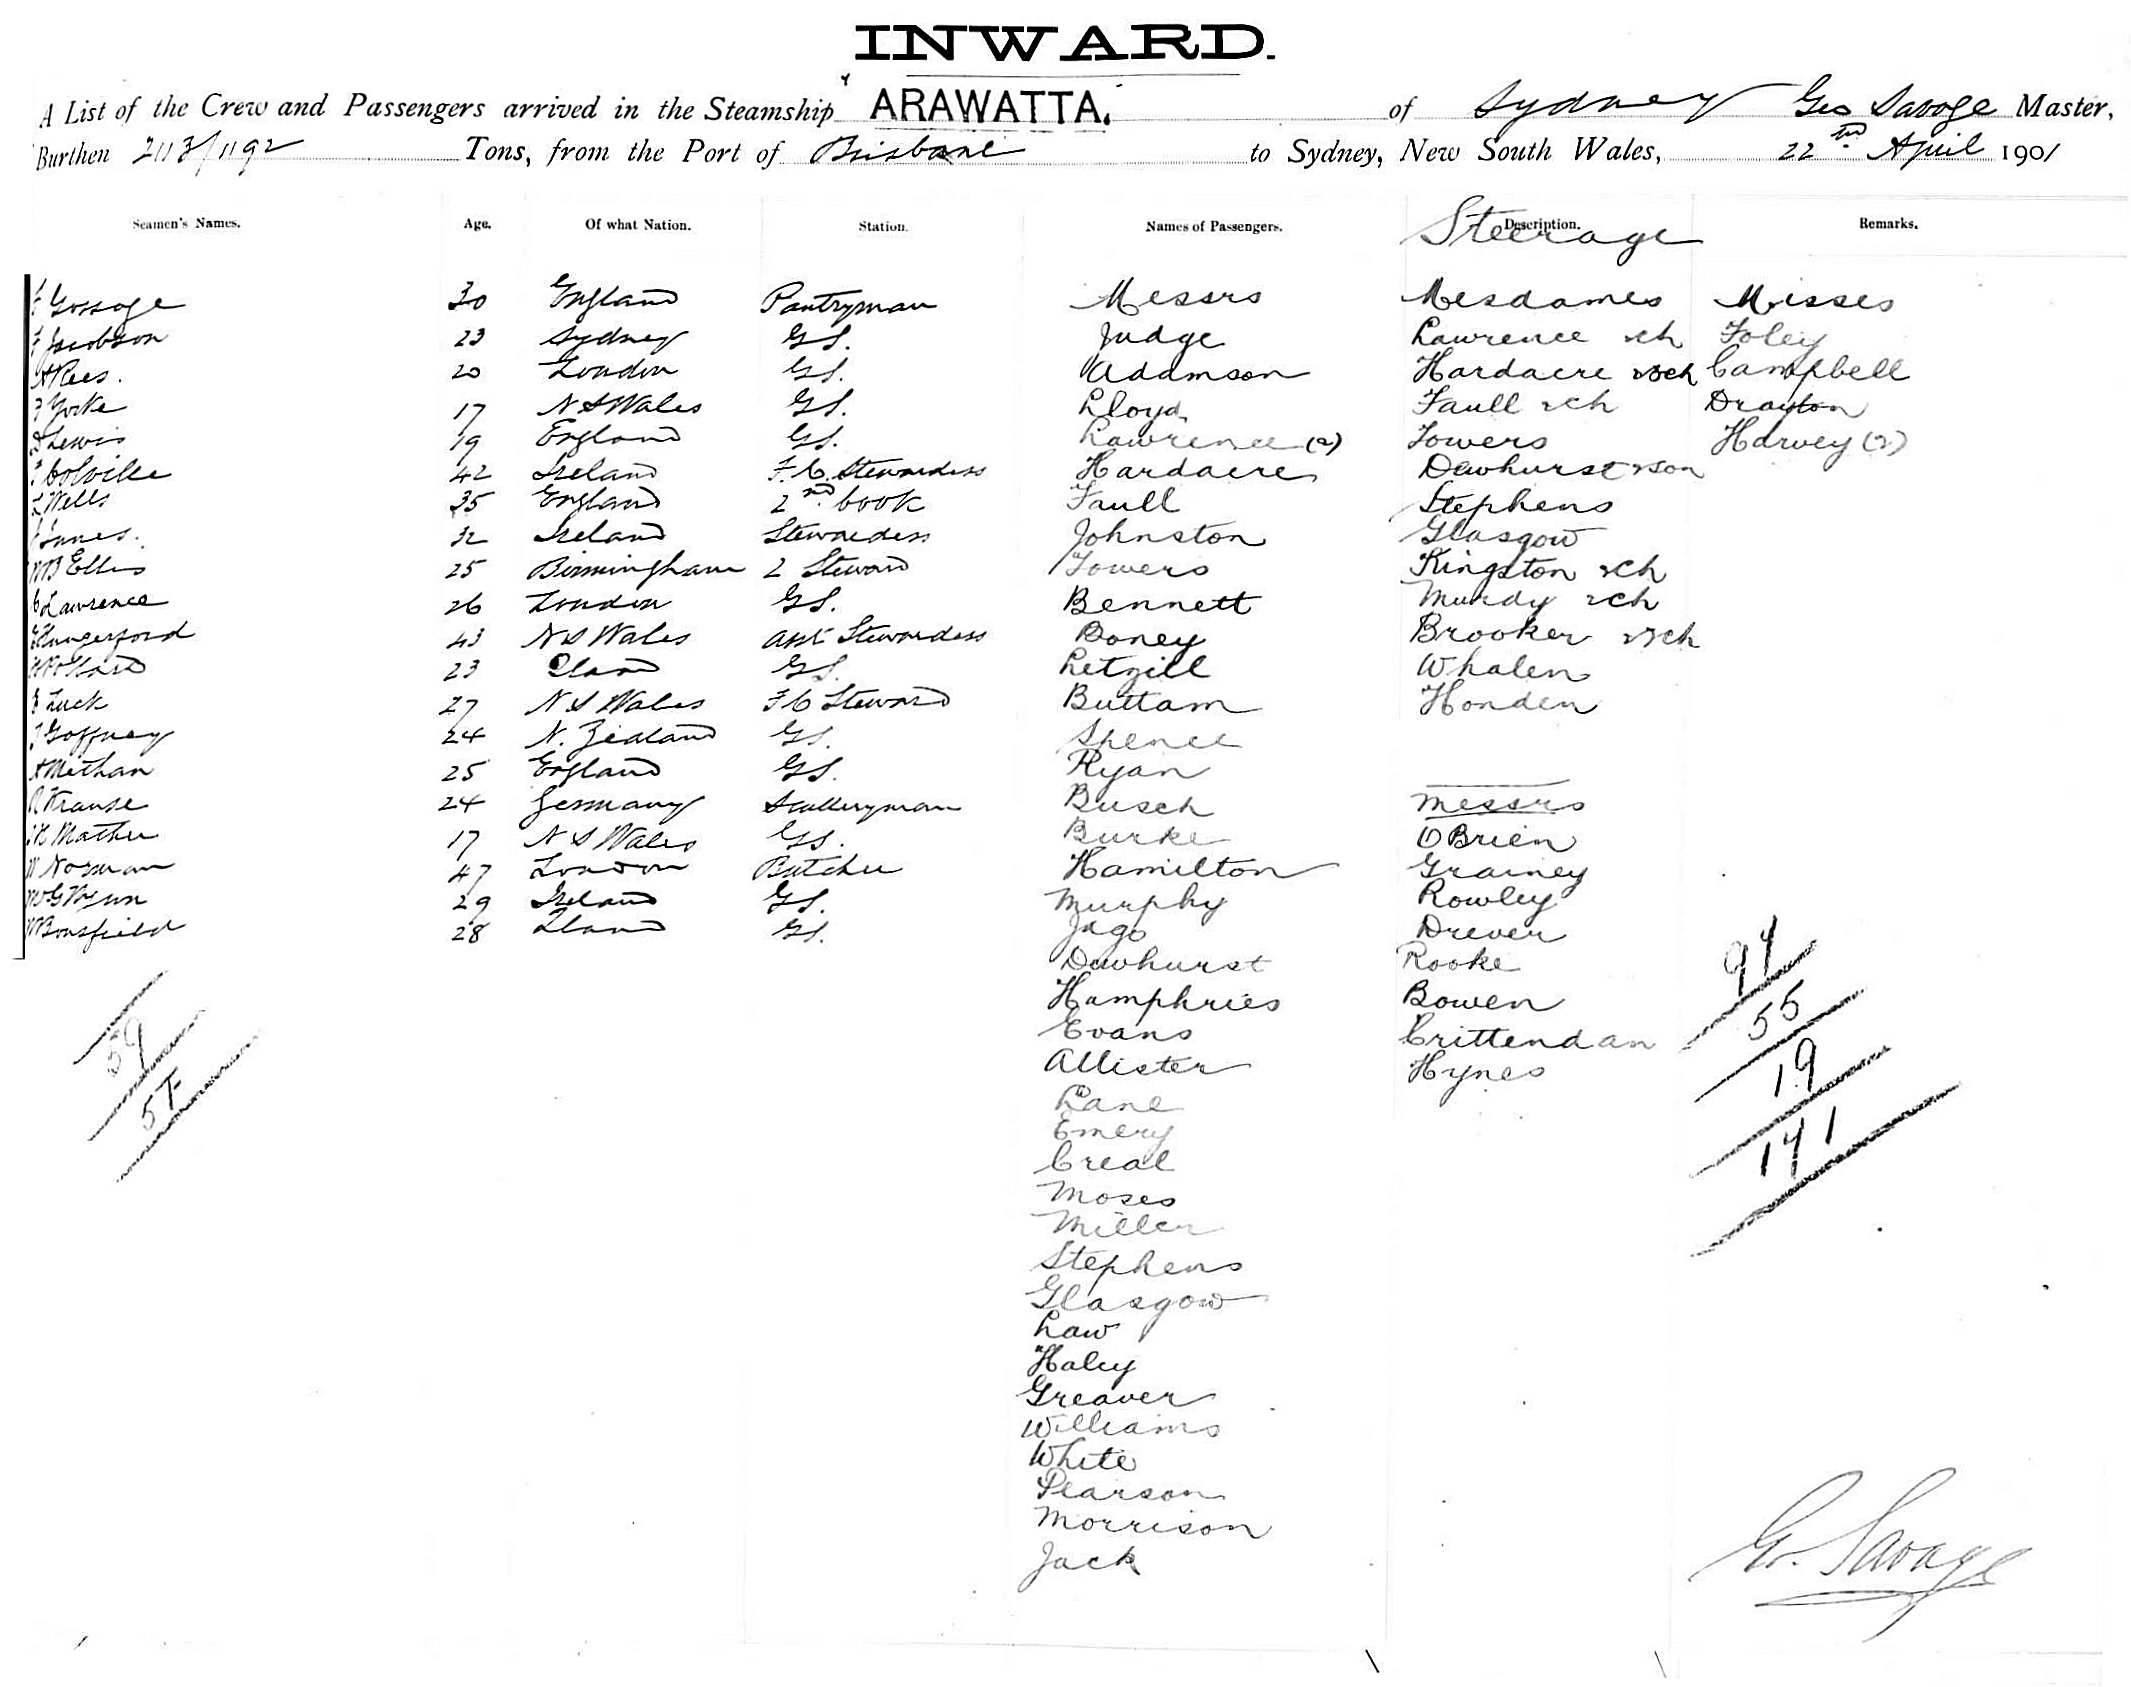 INWARD.
A List of the Crew and Passengers arrived in the Steamship ARAWATTA. of Sydney Geo Savage Master,
Burthen 2113/1192 Tons, from the Port of Brisbane to Sydney, New South Wales, 22nd April 1901
Seamen's Names. Age. Of what Nation. Station. Names of Passengers. Description. Remarks.
Steerage
Gossage 30 England Pantryman Messrs Mesdames Misses
F Jacobson 23 Sydney GS. Judge Lawrence &ch Foley
A Rees. 20 London GS. Adamson Hardacre &3ch Campbell
Yorke 17 N S Wales GS. Lloyd Faull &ch Drayton
D Lewis 19 England GS. Lawrence (2) Towers Harvey (2)
Colville 42 Ireland F.C. Stewardess Hardacre Dewhurst & son
L Wells 35 England 2nd Cook Faull Stephens
J Innes. 32 Ireland Stewardess Johnston Glasgow
W B Ellis 25 Birmingham 2 Steward Towers Kingston &ch
C Lawrence 26 London GS. Bennett Mundy &ch
Hungerford 43 N S Wales asst Stewardess Boney Brooker &3ch
23 GS. Letzill Whalen
Luck 27 N S Wales F C Steward Buttam Honden
T Goffney 24 N. Zealand GS. Spence
A Methan 25 England GS. Ryan
R Krause 24 Germany Sculleryman Busch Messrs
Mather 17 N S Wales GS. Burke O Brien
W Norman 47 London Butcher Hamilton Grainey
29 Ireland GS. Murphy Rowley
W Bousfield 28 GS. Jago Drever
Dewhurst Rooke
Hamphries Bowen
Evans Crittendan
Allister Hynes
Lane
Emery
Creal
Moses
Miller
Stephens
Glasgow
Law
Haley
Greaver
Williams
White
Pearson
Morrison
Jack
59
55
19
141
G. Savage